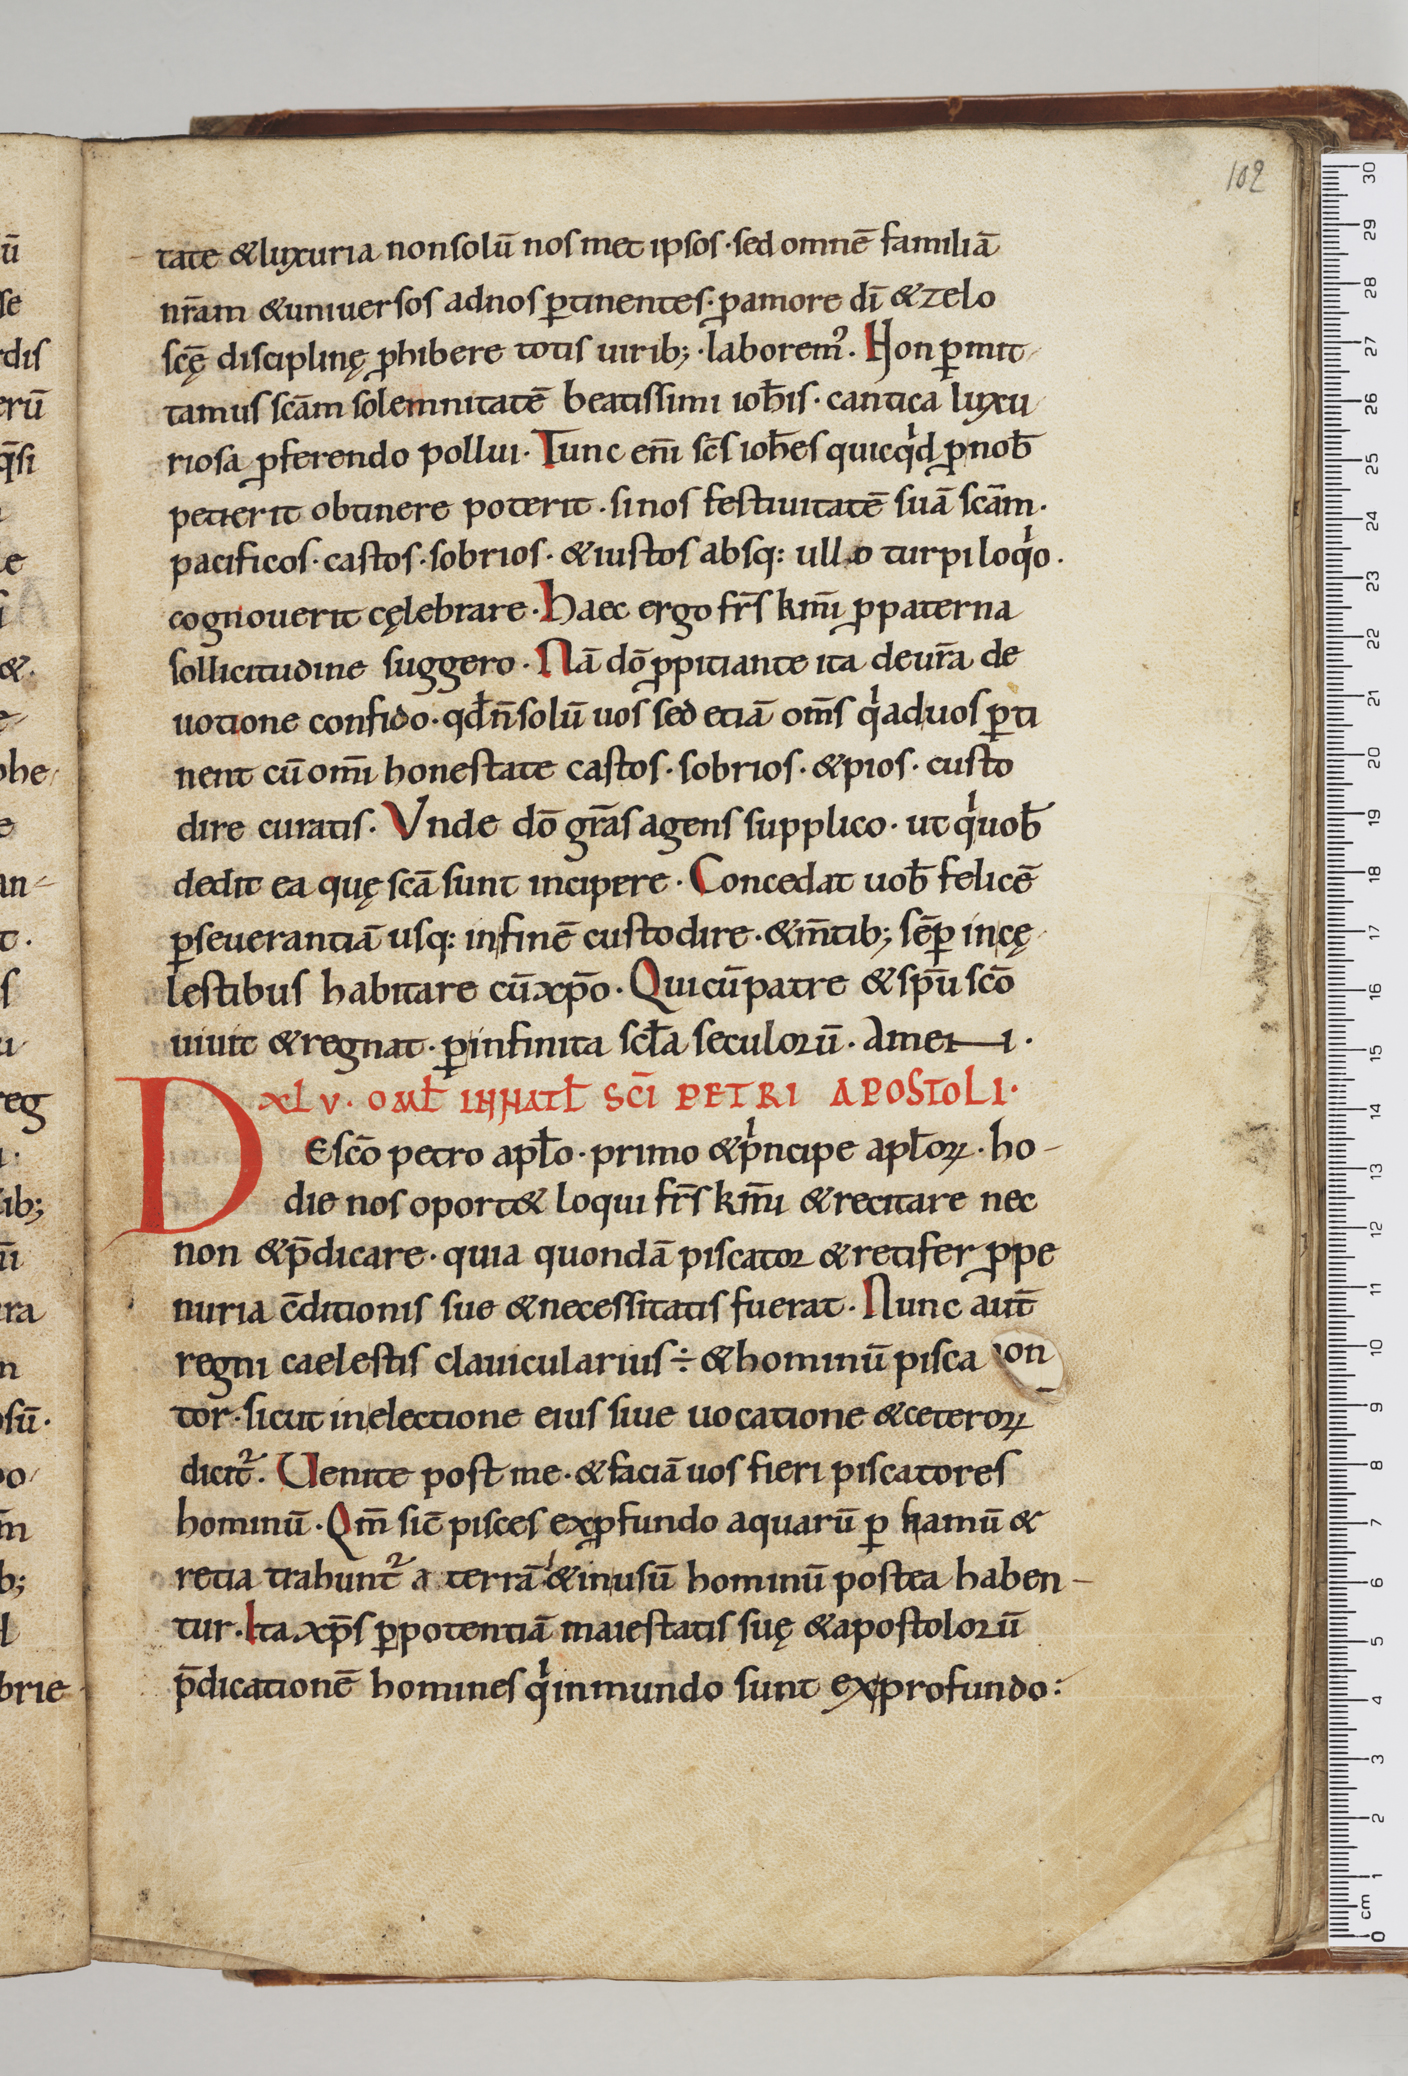 102
tate &luxuria nonsolū nos met ipsos · sed omnē familiā
nr̄am &uniuersos adnos ꝑtinentes · ꝓamore dī & zelo
scę̄ disciplinę ꝓhibere totis uirib; · laborem᷒. Non ꝑmit
tamus scām solemnitatē beatissimi ioh̄is · cantica luxu
riosa ꝓferendo pollui · Tunc enī sc̄s ioh̄es quicqͥd ꝓnob̄
petierit obtinere poterit · sinos festiuitatē suā scām ·
pacificos · castos · sobrios · &iustos absq: ullo turpiloqͥo ·
cognouerit cęlebrare · Haec ergo fr̄s km̄i ꝓpaterna
sollicitudine suggero · Nā dō ꝓpitiante ita deur̄a de
uotione confido · qd̄ n̄ solū uos sed etiā om̄s qͥ aduos ꝑti
nent cū om̄i honestate castos · sobrios · &pios · custo
dire curatis · Vnde dō gr̄as agens supplico · ut qͥ uob̄
dedit ea quę scā sunt incipere · Concedat uob̄ felicē
ꝑseuerantiā usq: infinē custodire · &m̄tib; sēꝑ incę
lestibus habitare cū xp̄o · Qui cū patre & sp̄u scō
uiuit &regnat · ꝑ infinita scl̄a seculorū · Amen ·
XLV · OML̄ IN NATL̄ SCI̅ PETRI APOSTOLI ·
DE scō petro apl̄o · primo &pͥncipe apl̄oꝝ · ho-
die nos oport& loqui fr̄s km̄i &recitare nec
non &p̄dicare · quia quondā piscator &retifer ꝓpe
nuria c̄ditionis sue &necessitatis fuerat · Nunc aut̄
regni caelestis clauicularius ÷ &hominū pisca
tor · sicut inelectione eius siue uocatione &ceteroꝝ
dicit᷑. Uenite post me · &faciā uos fieri piscatores
hominū · Qm̄ sic̄ pisces exꝓfundo aquarū ꝑ hamū &
retia trahunt᷑ a terrā &inusū hominū postea haben-
tur · Ita xp̄s ꝑ potentiā maiestatis suę &apostolorū
p̄dicationē homines qͥ inmundo sunt exprofundo: